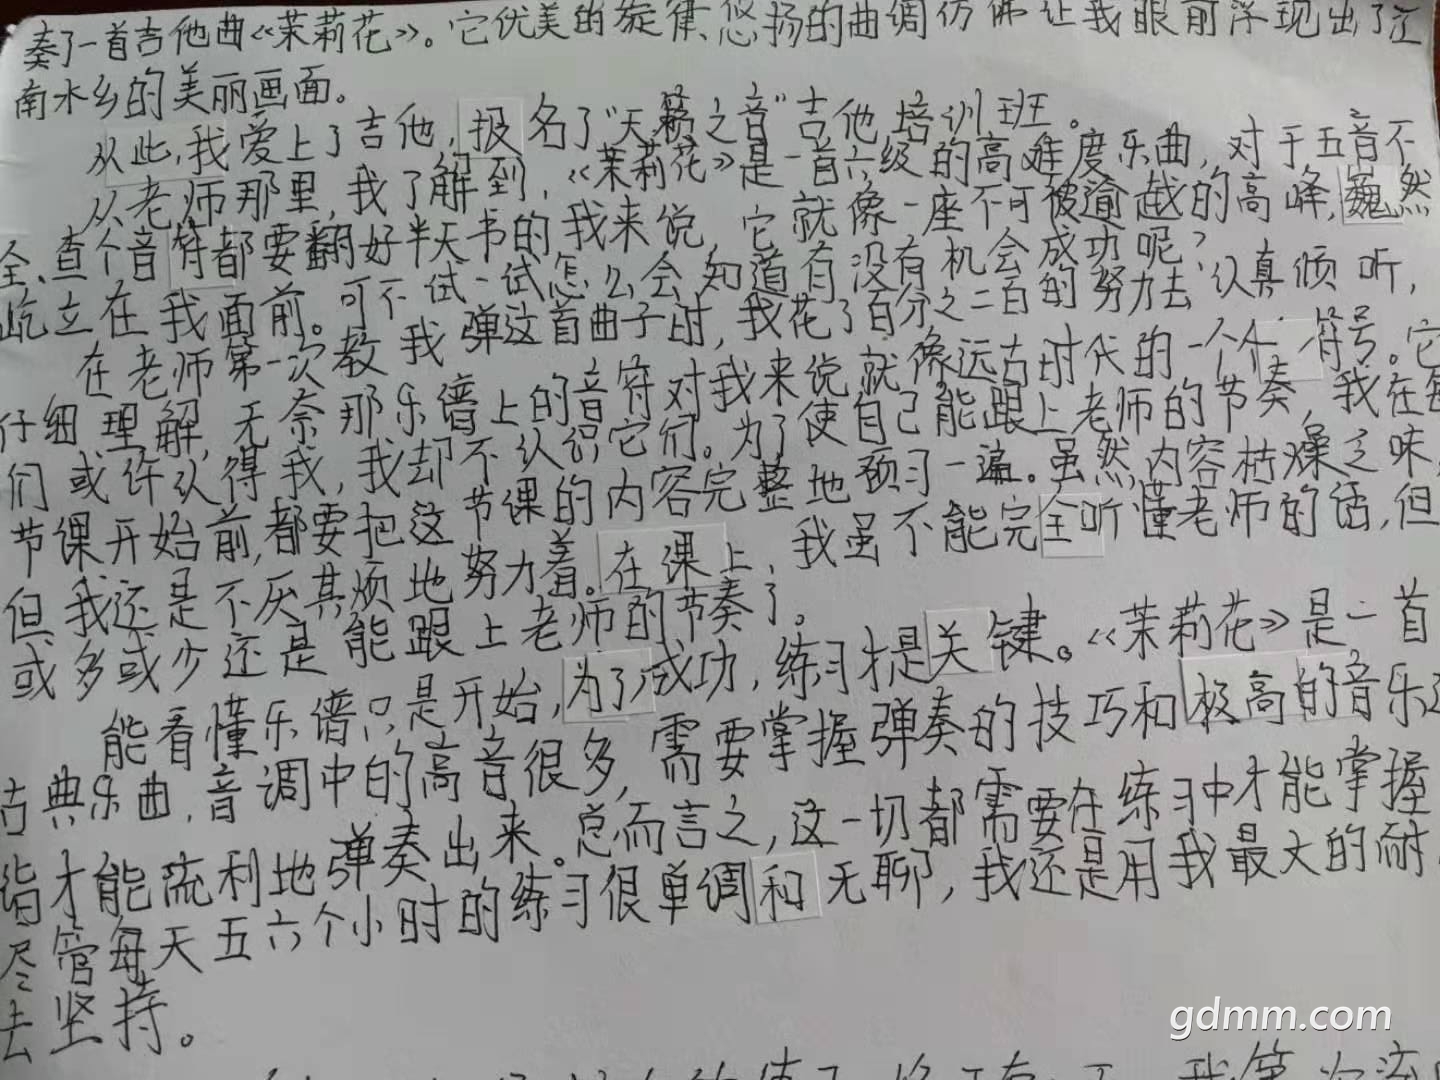 奏了一首吉他曲《茉莉花》。它优美的旋律、悠扬的曲调仿佛让我眼前浮现出了江
南水乡的美丽画面。
从此,我爱上了吉他,报名了“天籁之音”吉他培训班。
从老师那里,我了解到,《茉莉花》是一首六级的高难度乐曲,对于五音不
全、查个音符都要翻好半天书的我来说,它就像一座不可被逾越的高峰,巍然
屹立在我面前。可不试一试怎么会知道有没有机会成功呢?
在老师第一次教我弹这首曲子时,我花了百分之二百的努力去认真倾听,
仔细理解,无奈那乐谱上的音符对我来说就像远古时代的一个个符号。它
们或许认得我,我却不认识它们。为了使自己能跟上老师的节奏,我在每
节课开始前,都要把这节课的内容完整地预习一遍。虽然,内容枯燥乏味,
但我还是不厌其烦地努力着。在课上,我虽不能完全听懂老师的话,但
或多或少还是能跟上老师的节奏了。
能看懂乐谱只是开始,为了成功,练习才是关键。《茉莉花》是一首
古典乐曲,音调中的高音很多,需要掌握弹奏的技巧和极高的音乐造
诣才能流利地弹奏出来。总而言之,这一切都需要在练习中才能掌握
尽管每天五六个小时的练习很单调和无聊,我还是用我最大的耐
去坚持。
gdmm.com